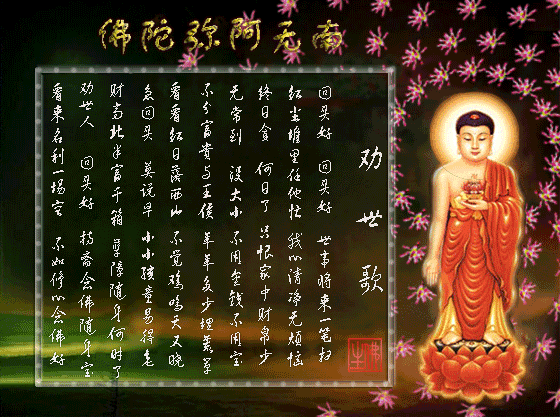 南无阿弥陀佛
劝世歌
回头好 回头好 世事将来一笔扫
红尘堆里任他忙 我心清净无烦恼
终日贪 何日了 只恨家中财帛少
无常到 没大小 不用金钱不用宝
不分富贵与王侯 年年多少埋荒草
看看红日落西山 不觉鸡鸣天又晓
急回头 莫说早 小小孩童易得老
财高北斗富千箱 孽障随身何时了
劝世人 回头好 持斋念佛随身宝
看来名利一场空 不如修心念佛好